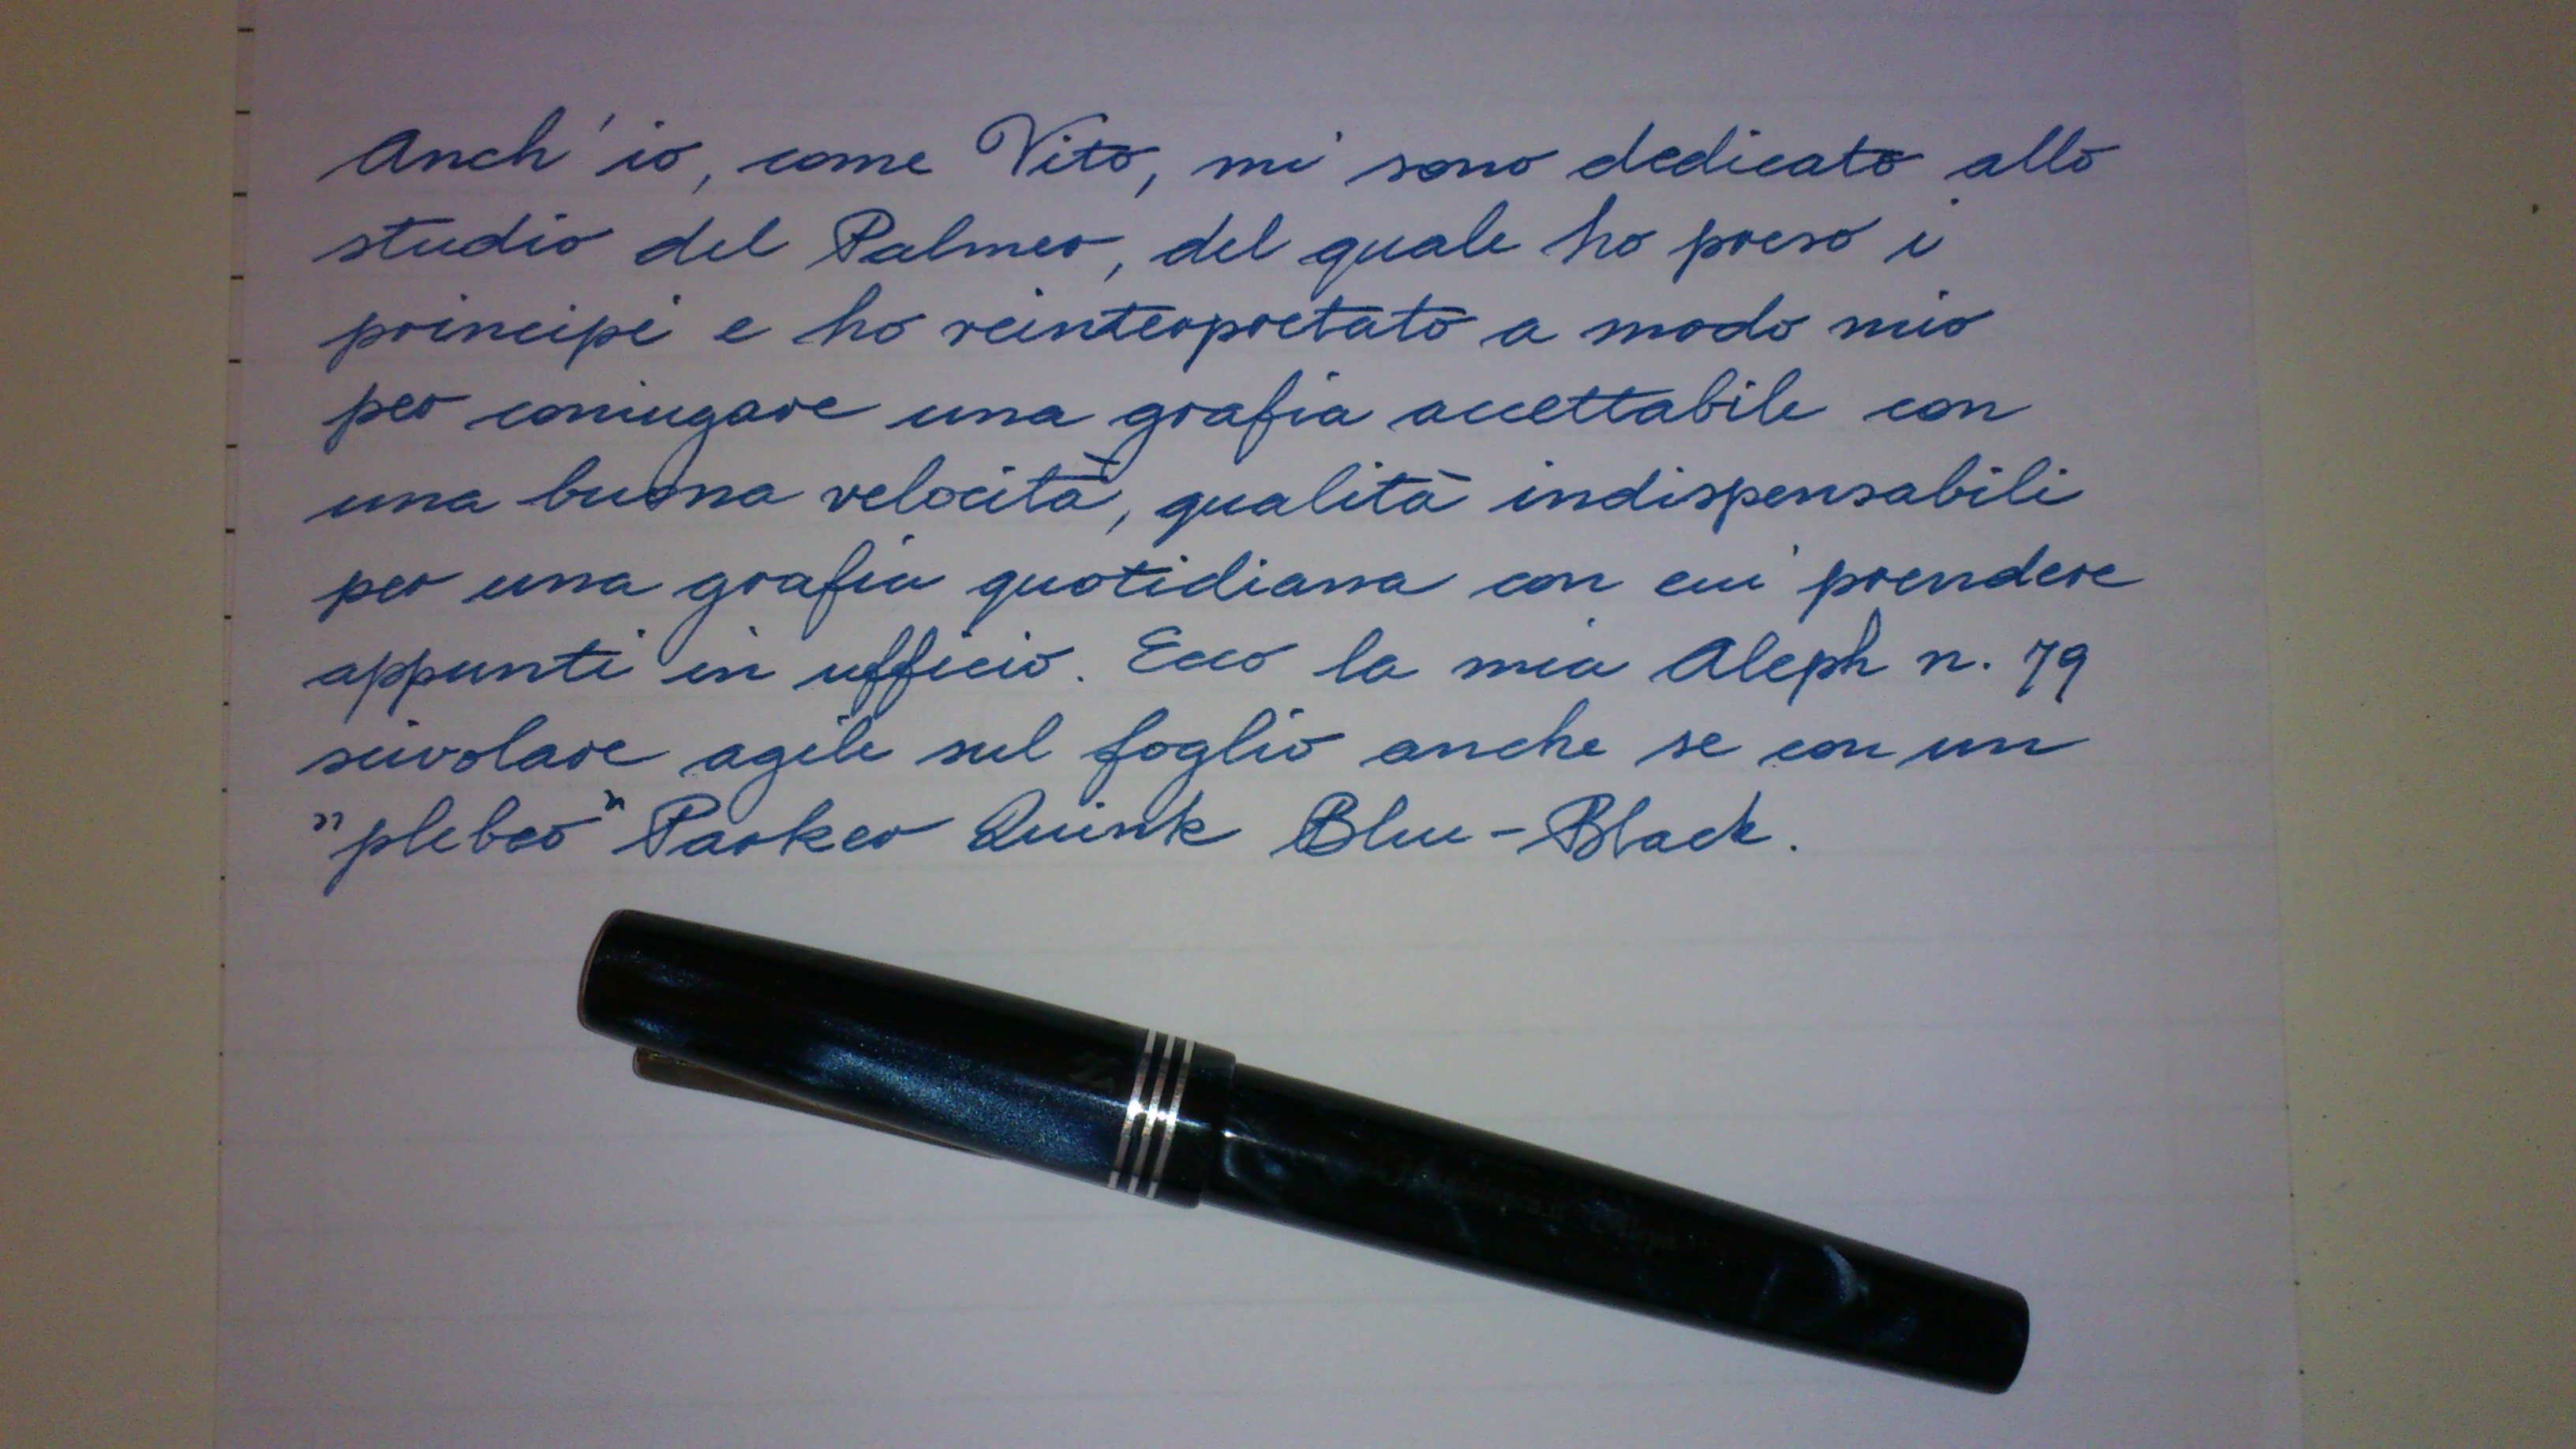 Anch'io, come Vito, mi sono dedicato allo
studio del Palmer, del quale ho preso i
principi e ho reinterpretato a modo mio
per coniugare una grafia accettabile con
una buona velocità, qualità indispensabili
per una grafia quotidiana con cui prendere
appunti in ufficio. Ecco la mia Aleph n. 79
scivolare agile sul foglio anche se con un
"plebeo" Parker Quink Blue-Black.